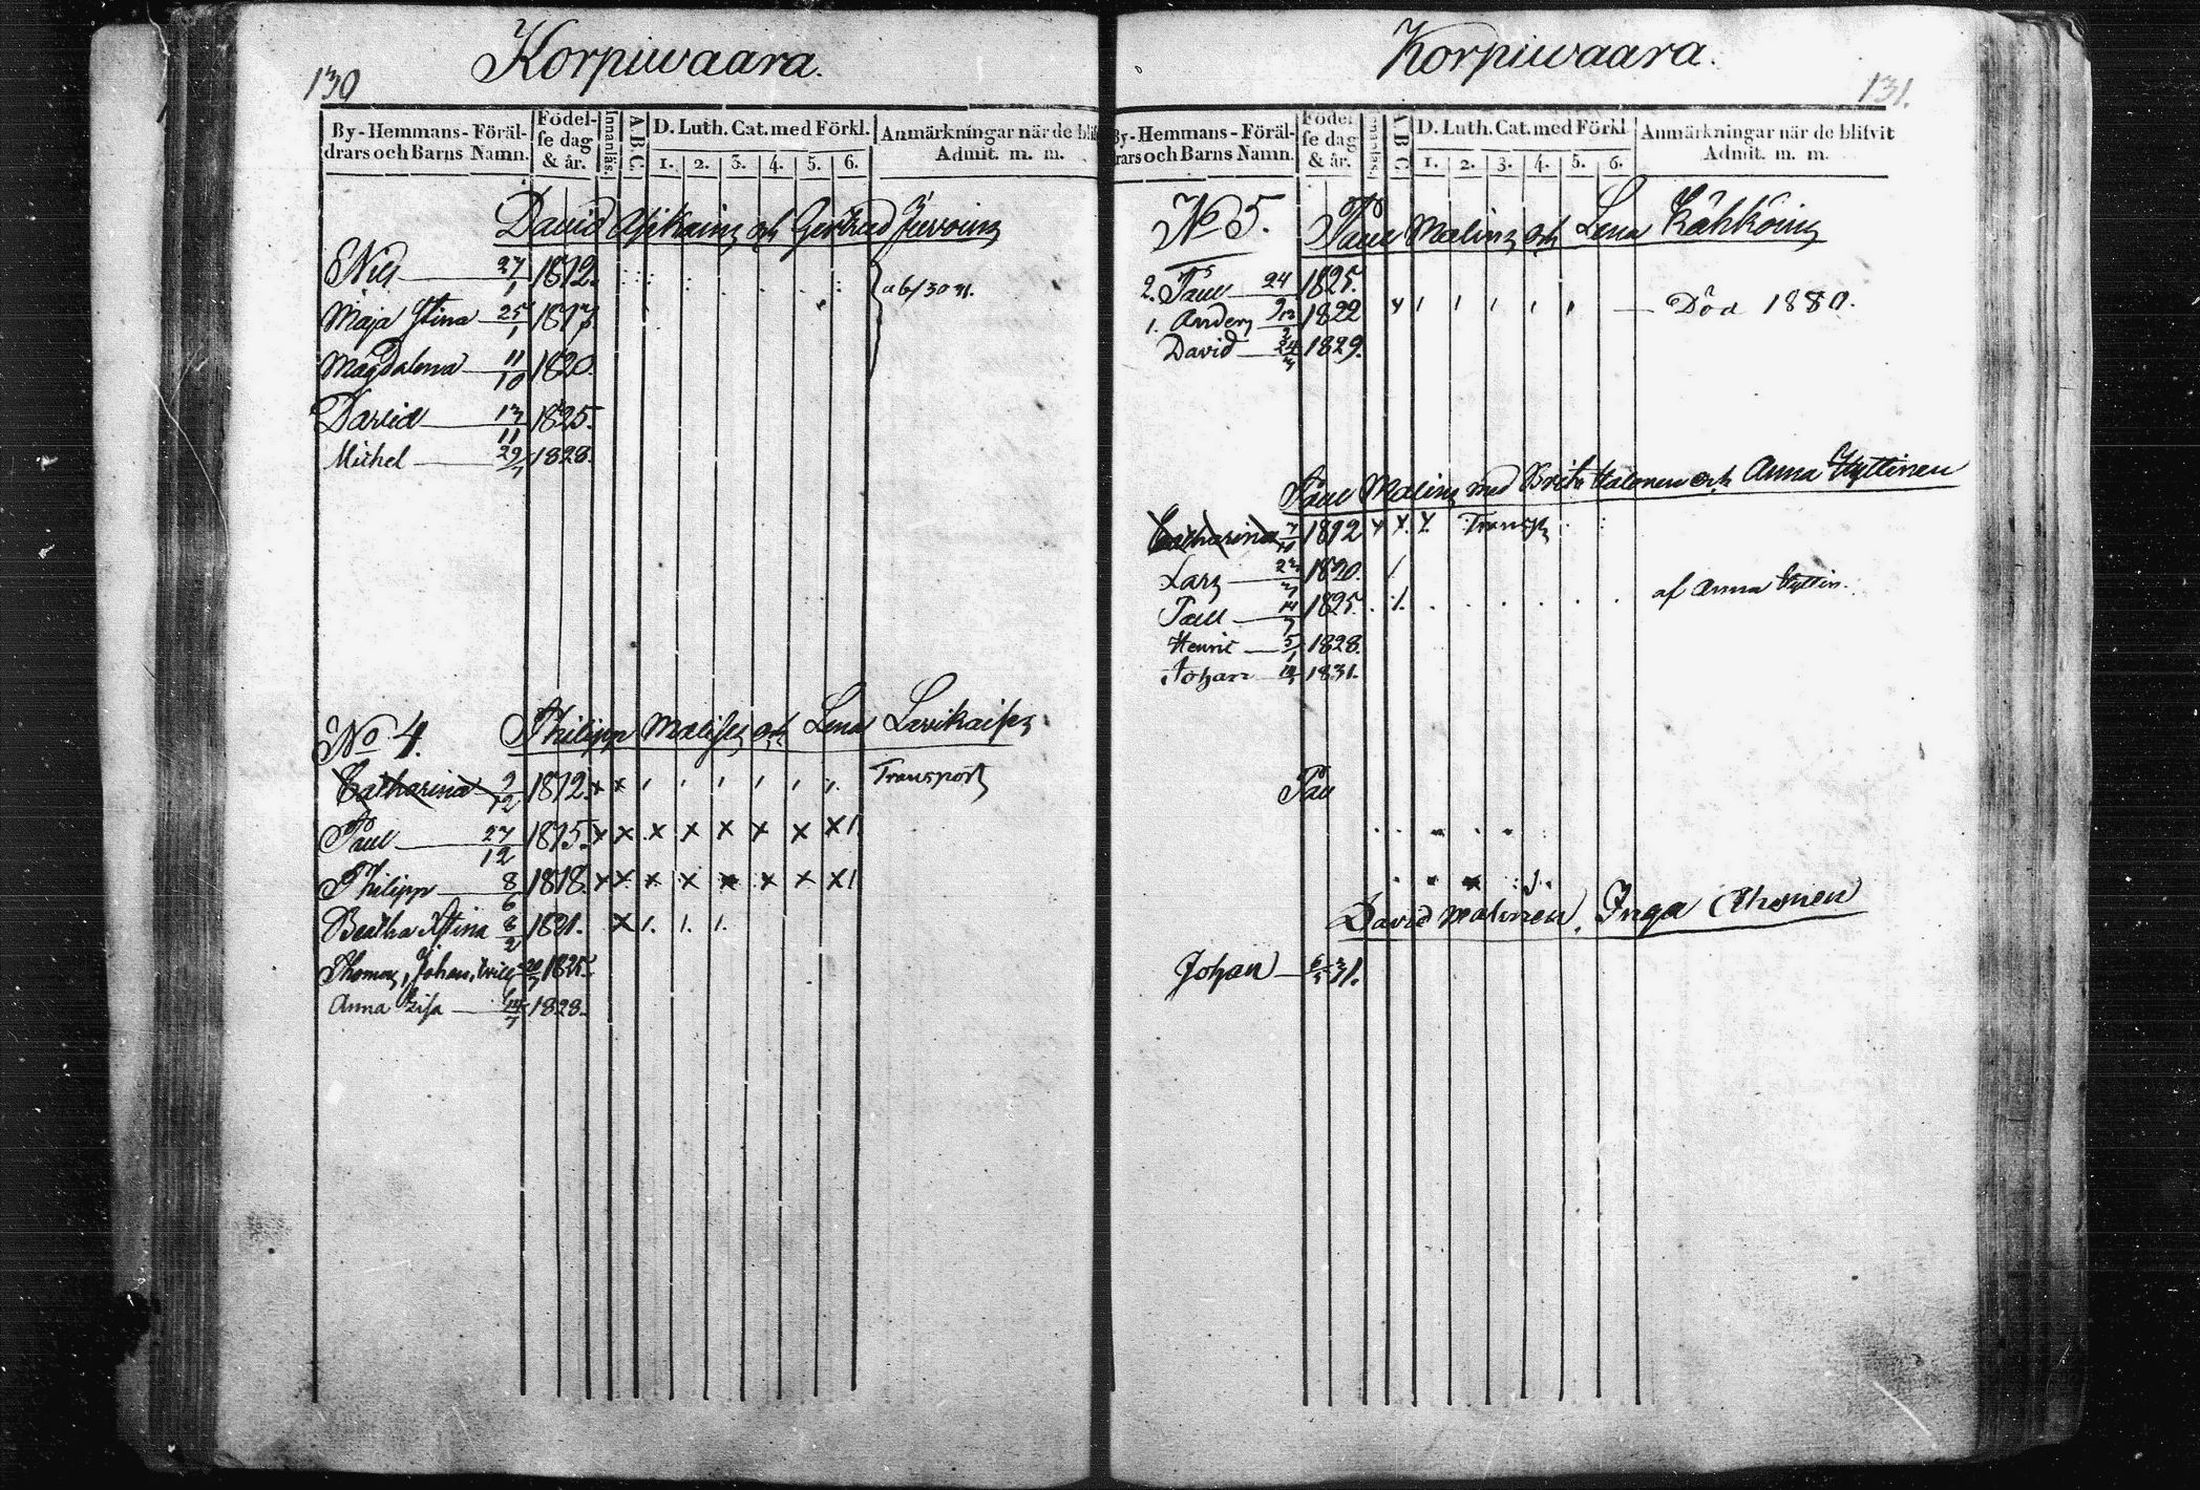 130
Korpiwaara.
By-Hemmans-Föräl-
drars och Barns Namn.
Födel-
se dag
& år.
Innanläs.
A.B.C.
D. Luth. Cat. med Förkl.
1. 2. 3. 4. 5. 6.
Anmärkningar när de blif
Admit. m. m.
David Asikain och Gertrud
Nils 27/1 1812.
Maja Stina 25/1 1817
Magdalena 11/10 1820.
David 13/11 1825.
Michel 29/7 1828.
No 4. Philipp Malisen och Lena Lavikaisen
Catharina 2/12 1812. x x Transport
Paul 27/12 1815. x x x x x x x x 1.
Philipp 8/6 1818. x x x x x x x x 1
Beatha Stina 8/2 1821. x 1. 1. 1.
Thomas, Johan, 1825.
Anna Lisa 14/7 1828.
Korpiwaara.
131.
By-Hemmans-Föräl-
rars och Barns Namn.
Födel
se dag
& år.
A B C
D. Luth. Cat. med Förkl
1. 2. 3. 4. 5. 6.
Anmärkningar när de blifvit
Admit. m. m.
No 5. Paul Malin och Lena Kähköin
2. Paul 24 1825.
1. Anders 1822 Död 1880.
David 24/3 1829.
Paul Malin med Brita Halonen och Anna Hyttinen
Catharina 1812 x x x Transp
Lars 1820.
Paul 14/7 1825. af Anna Hyttin.
Henric 5/1 1828.
Johan 1831.
Pau
David Malinen, Inga Ahonen
Johan 31.